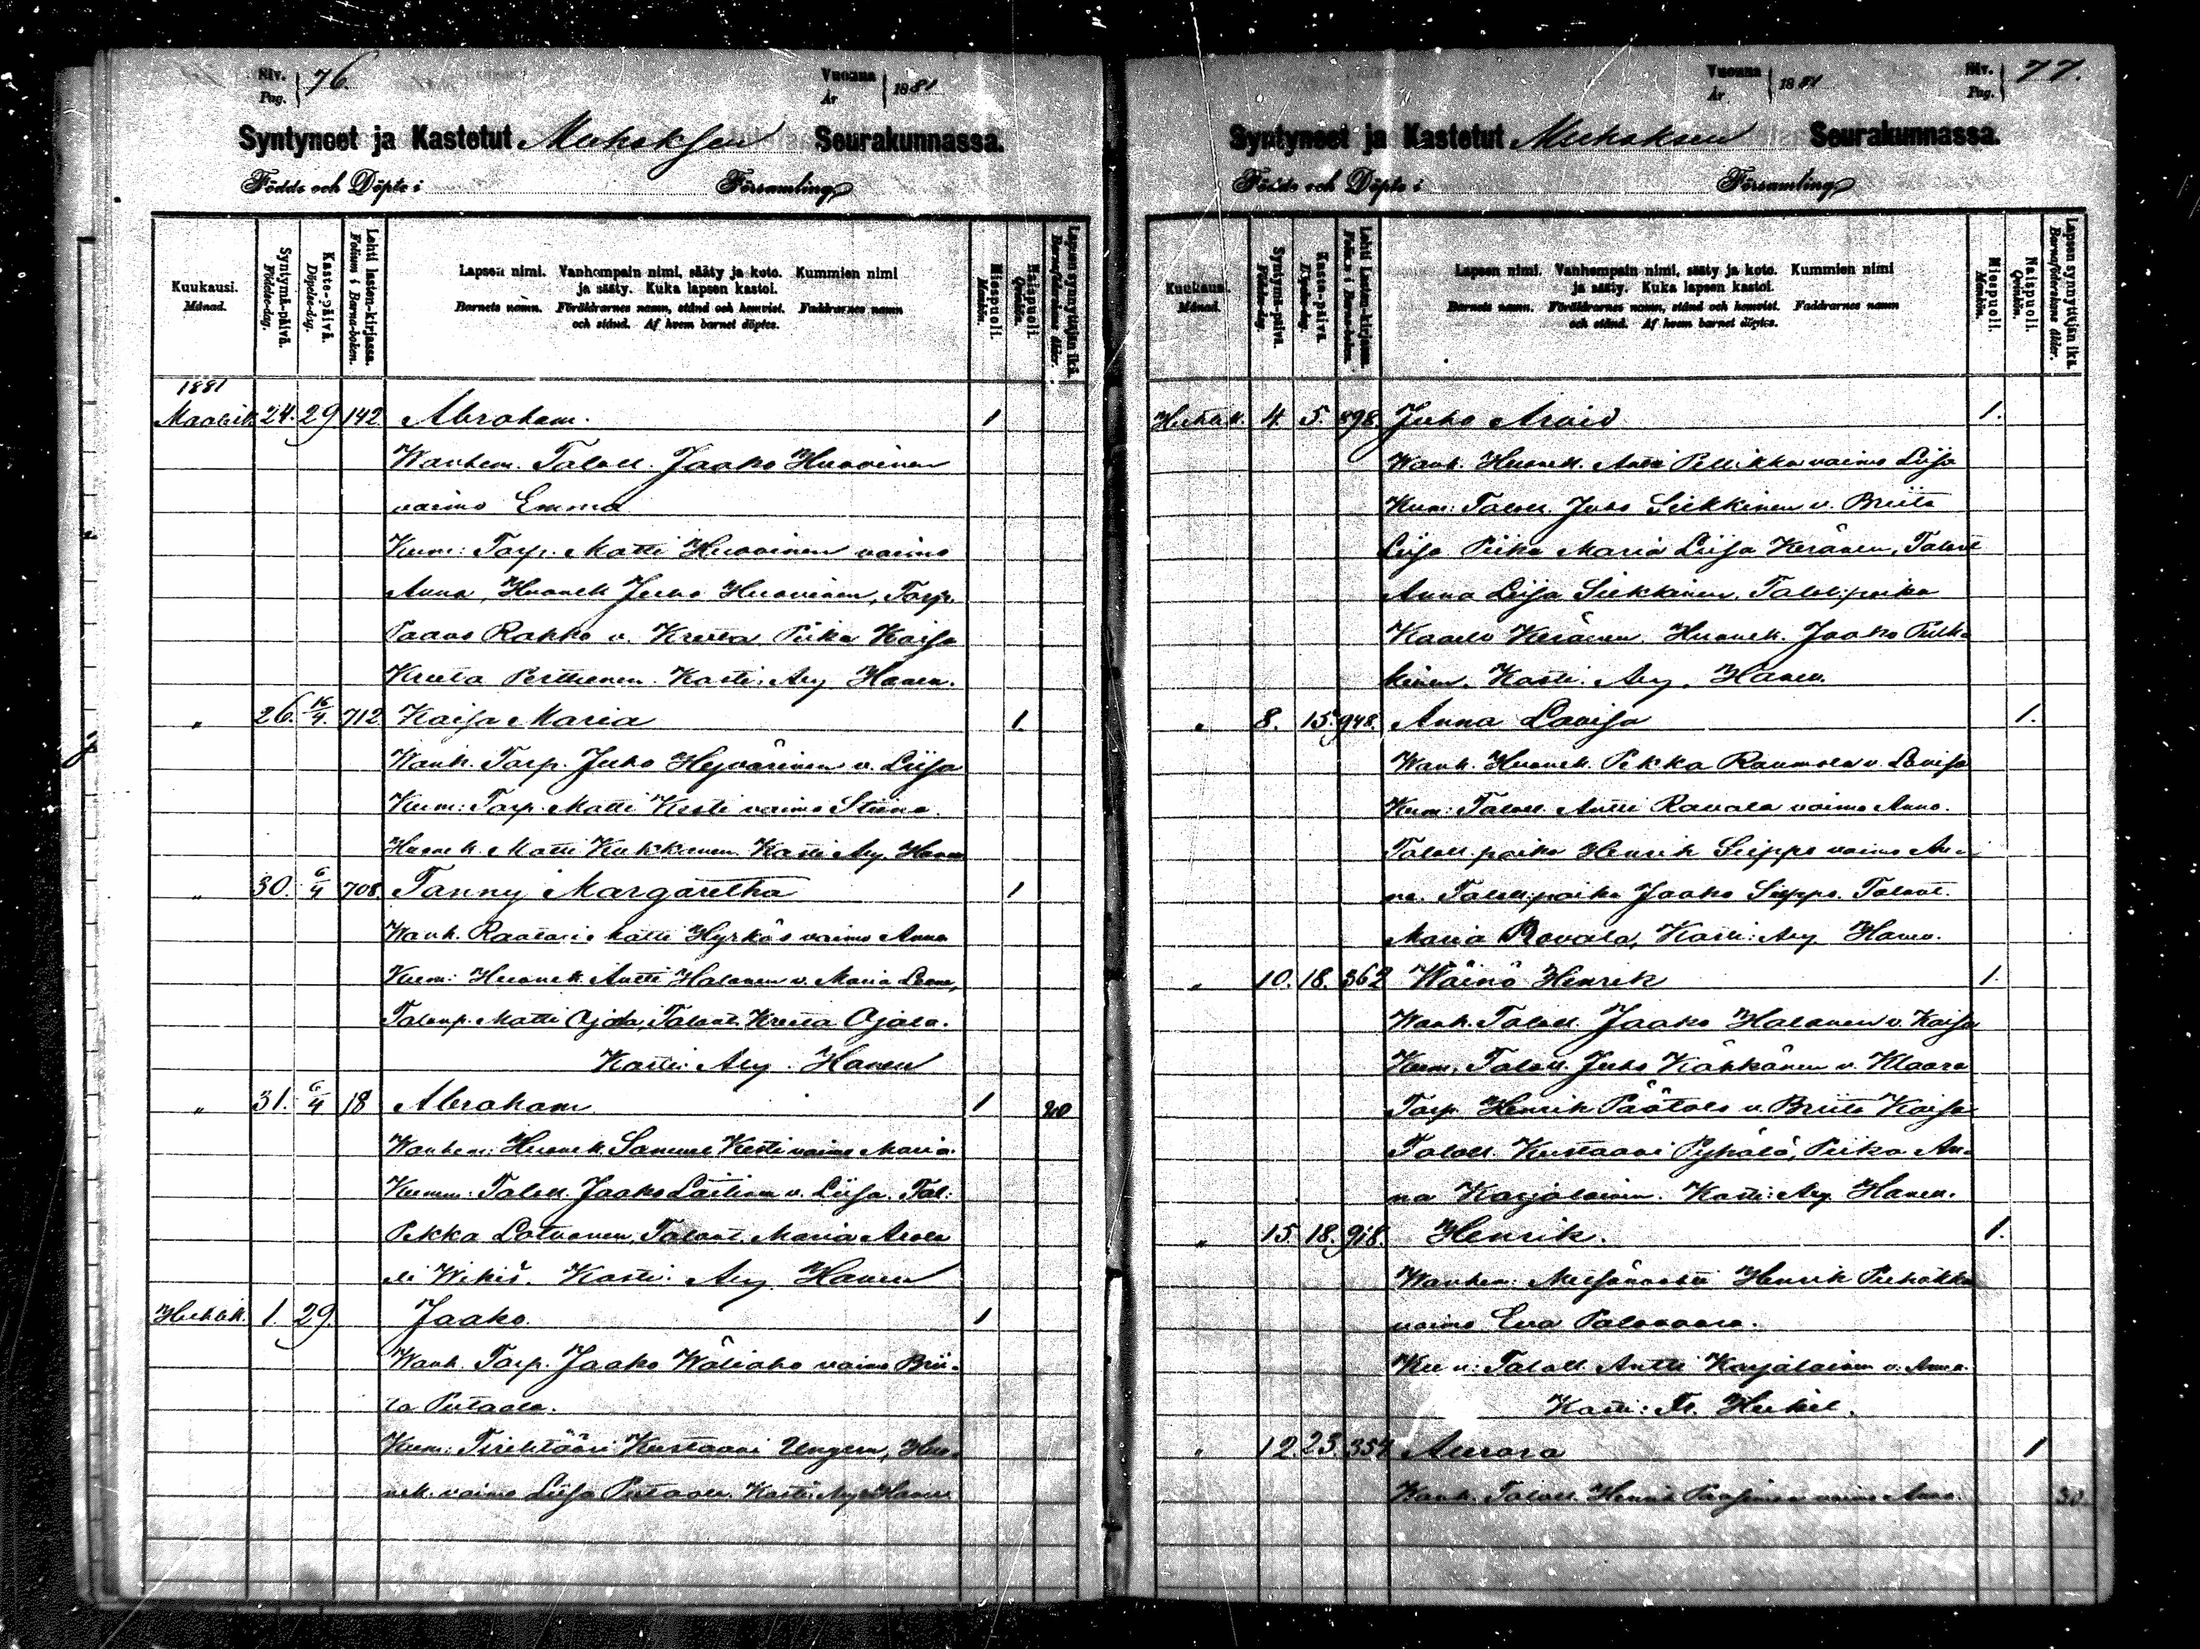 Siv. Pag. 76. Vuonna År 1881
Syntyneet ja Kastetut Muhoksen Seurakunnassa.
Födde och Döpte i Församling
Kuukausi. Månad.
Syntymä-päivä. Födelse-dag.
Kaste-päivä. Döpelse-dag.
Lehti lasten-kirjassa. Folium i Barna-boken.
Lapsen nimi. Vanhempain nimi, sääty ja koto. Kummien nimi
ja sääty. Kuka lapsen kastoi.
Barnets namn. Föräldrarnes namn, stånd och hemvist. Faddrarnes namn
och stånd. Af hvem barnet döptes.
Miespuoli. Mankön.
Naispuoli. Qvinkön.
Lapsen synnyttäjän ikä. Barnaföderskans ålder.
1881
Maalisk. 24. 29 142 Abraham. 1
Wanhem. Taloll. Jaako Huovinen
vaimo Emma
Kum: Torp. Matti Huovinen vaimo
Anna, Huonek Juho Huovinen, Torp.
Paavo Rahko v. Kreeta, Piika Kaisa
Kreeta Perttunen. Kasti: Arm. Haven.
" 26. 16/4. 712 Kaisa Maria 1.
Wanh. Torp. Juho Hyvärinen v. Liisa
Kum: Torp. Matti Kesti vaimo Stiina.
Huonek. Matti Kukkanen. Kasti Haven
" 30. 6/4 708. Fanny Margaretha 1
Wanh. Raatari Matti Hyrkäs vaimo Anna
Kum: Huonek. Antti Halonen v. Maria
Talonp. Matti Ojala, Talont. Kreeta Ojala.
Kasti: Haven
" 31. 6/4 18 Abraham 1 20
Wanhem: Huonek. Samuel Kesti vaimo Maria.
Kumm: Taloll. Jaako Laitinen v. Liisa. Tal:
Pekka Latvanen, Talont. Maria
Kasti: Haven
Huhtik. 1. 29. Jaako. 1
Wanh. Torp. Jaako Wäliaho vaimo Brii-
ta Pietaala.
Kum: Tirehtööri Kustaavi Ungern, Huo-
nek. vaimo Liisa Kasti: Haven
Vuonna År 1881 Siv. Pag. 77.
Syntyneet ja Kastetut Muhoksen Seurakunnassa.
Födde och Döpte i Församling
Kuukausi. Månad.
Syntymä-päivä. Födelse-dag.
Kaste-päivä. Döpelse-dag.
Lehti Lasten-kirjassa. Folium i Barna-boken.
Lapsen nimi. Vanhempain nimi, sääty ja koto. Kummien nimi
ja sääty. Kuka lapsen kastoi.
Barnets namn. Föräldrarnes namn, stånd och hemvist. Faddrarnes namn
och stånd. Af hvem barnet döptes.
Miespuoli. Mankön.
Naispuoli. Qvinkön.
Lapsen synnyttäjän ikä. Barnaföderskans ålder.
Huhtik. 4. 5. 898. Juho Arvid 1.
Wanh. Huonek. Antti Pellikka vaimo Liisa
Kum: Taloll. Juho Siekkinen v. Briita
Liisa Piika Maria Liisa Keränen, Talont
Anna Liisa Siekkinen, Taloll:poika
Kaarlo Keränen, Huonek. Jaako Pulk-
kinen. Kasti: Haven.
" 8. 15. 948. Anna Lovisa 1.
Wanh. Huonek. Pekka Raumola v. Lovisa
Kum: Taloll. Antti Ravala vaimo Anna.
Taloll. poika Henrik Seppo vaimo An-
na. Taloll:poika Jaako Seppo. Talont.
Maria Rovala, Kasti: Haven.
" 10. 18. 362 Wäinö Henrik 1.
Wanh. Taloll. Jaako Halonen v. Kaisa
Kum. Taloll. Juho Kähkönen v. Klaara
Torp. Henrik Päätalo v. Briita Kaisa
Taloll. Kustaavi Pyhälä, Piika An-
na Karjalainen. Kasti: Haven.
" 15. 18. 918. Henrik. 1.
Wanhem: Metsänvahti Henrik Puhakka
vaimo Eva Palovaara.
Kum: Taloll. Antti Karjalainen v. Anna.
Kasti:
" 12. 23. 354 Aurora 1
Wanh. Taloll. Henrik vaimo Anna. 30.